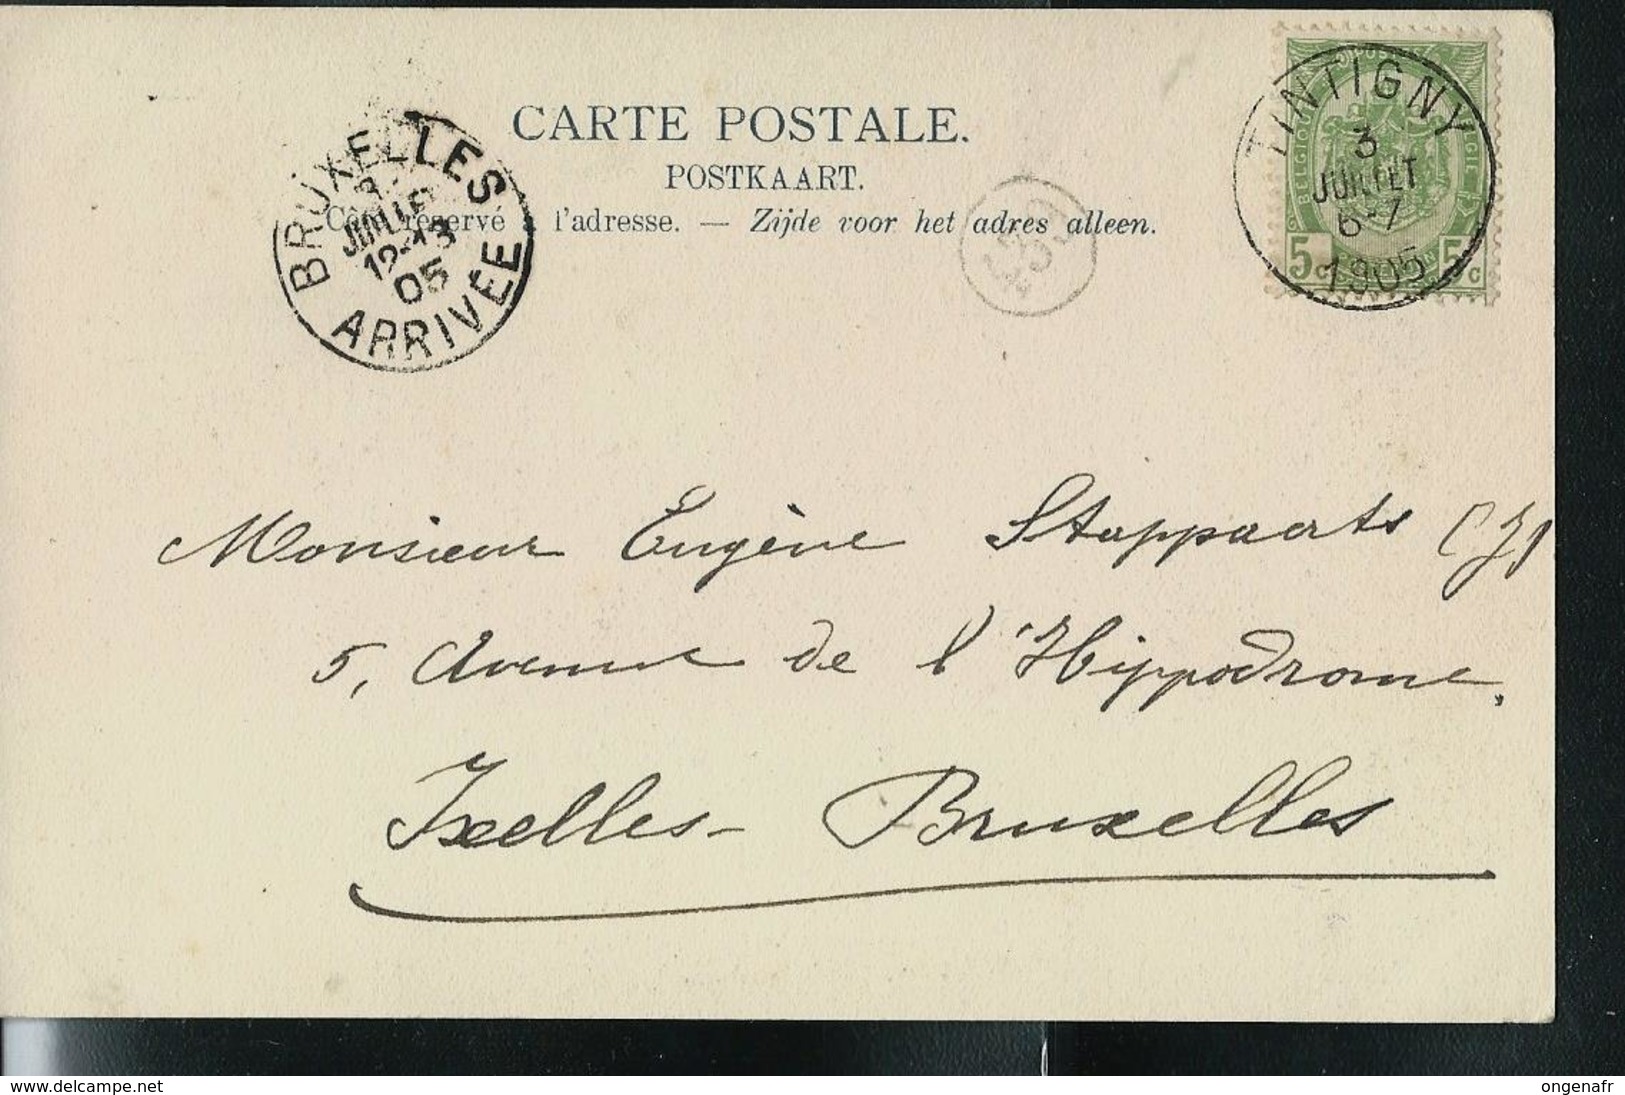 CARTE POSTALE.
POSTKAART.
Côté réservé à l'adresse. — Zijde voor het adres alleen.
BRUXELLES
3
JUILLET
12-13
05
ARRIVÉE
TINTIGNY
3
JUILLET
6-7
1905
5c 5c
Monsieur Eugène Stappaerts
5, Avenue de l'Hippodrome,
Ixelles - Bruxelles
delcampe.net
ongenafr